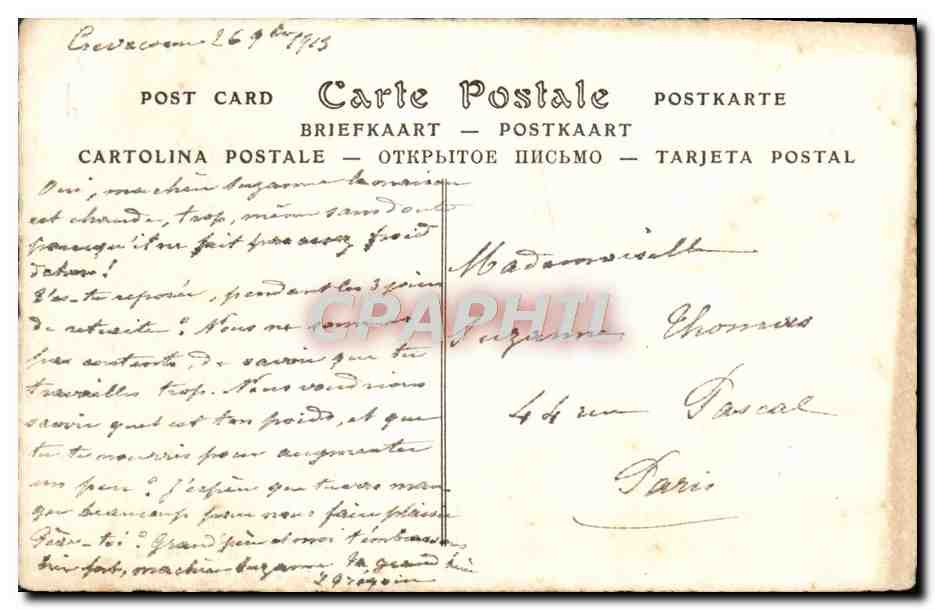 26 9bre 1913
POST CARD Carte Postale POSTKARTE
BRIEFKAART — POSTKAART
CARTOLINA POSTALE — ОТКРЫТОЕ ПИСЬМО — TARJETA POSTAL
Oui, ma chère Suzanne la maison
est chaude, trop, même sans doute
puisqu'il ne fait pas assez froid
dehors!
T'es-tu reposée, pendant les 3 jours
de retraite? Nous ne sommes
pas contents, de savoir que tu
travailles trop. Nous voudrions
savoir quel est ton poids, et que
tu te nourris pour augmenter
un peu? J'espère que tu vas man-
ger beaucoup pour nous faire plaisir
Pèse-toi? Grand père et moi t'embrassons
bien fort, ma chère Suzanne ta grand mère
Mademoiselle
Suzanne Thomas
44 rue Pascal
Paris
CPAPHIL